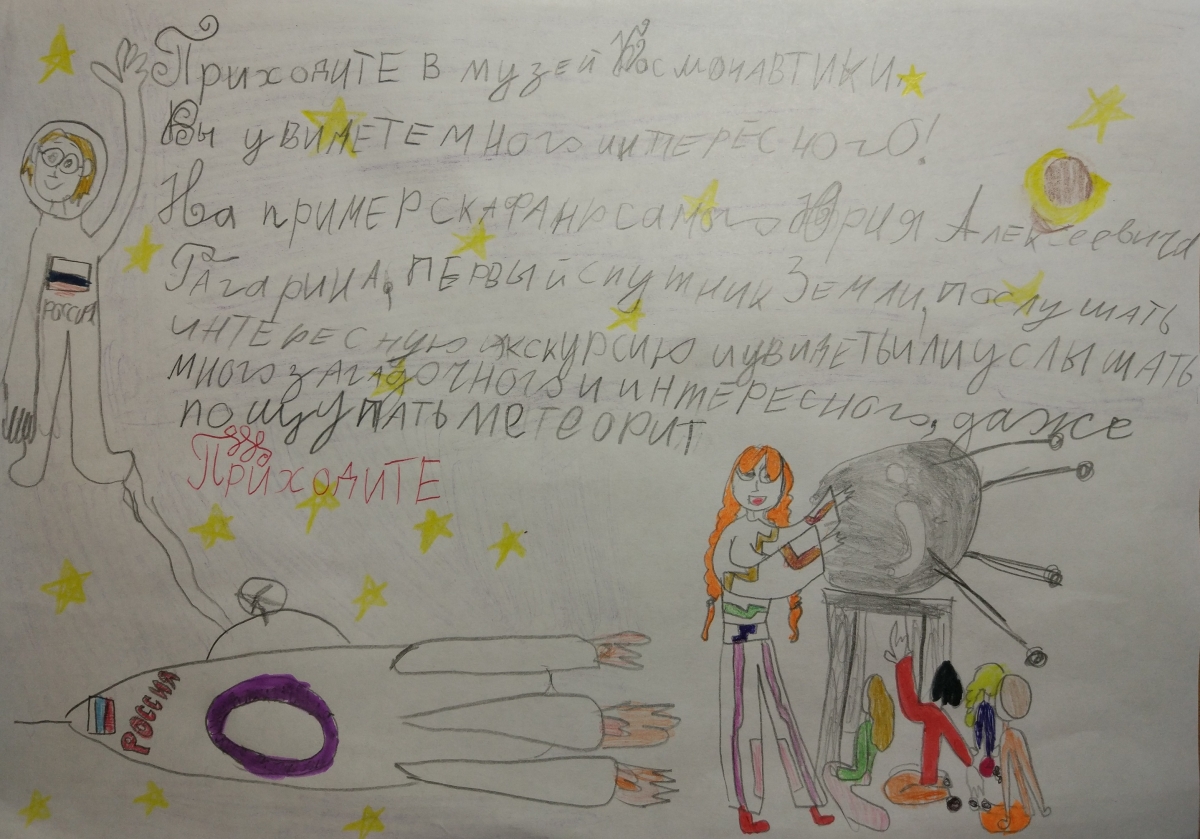 Приходите в музей Космонавтики.
Вы увидете много интересного!
На пример скафандр самого Юрия Алексеевича
Гагарина, первый спутник Земли, послушать
интересную экскурсию и увидеть или услышать
много загадочного и интересного, даже
пощупать метеорит
Приходите
РОССИЯ
РОССИЯ